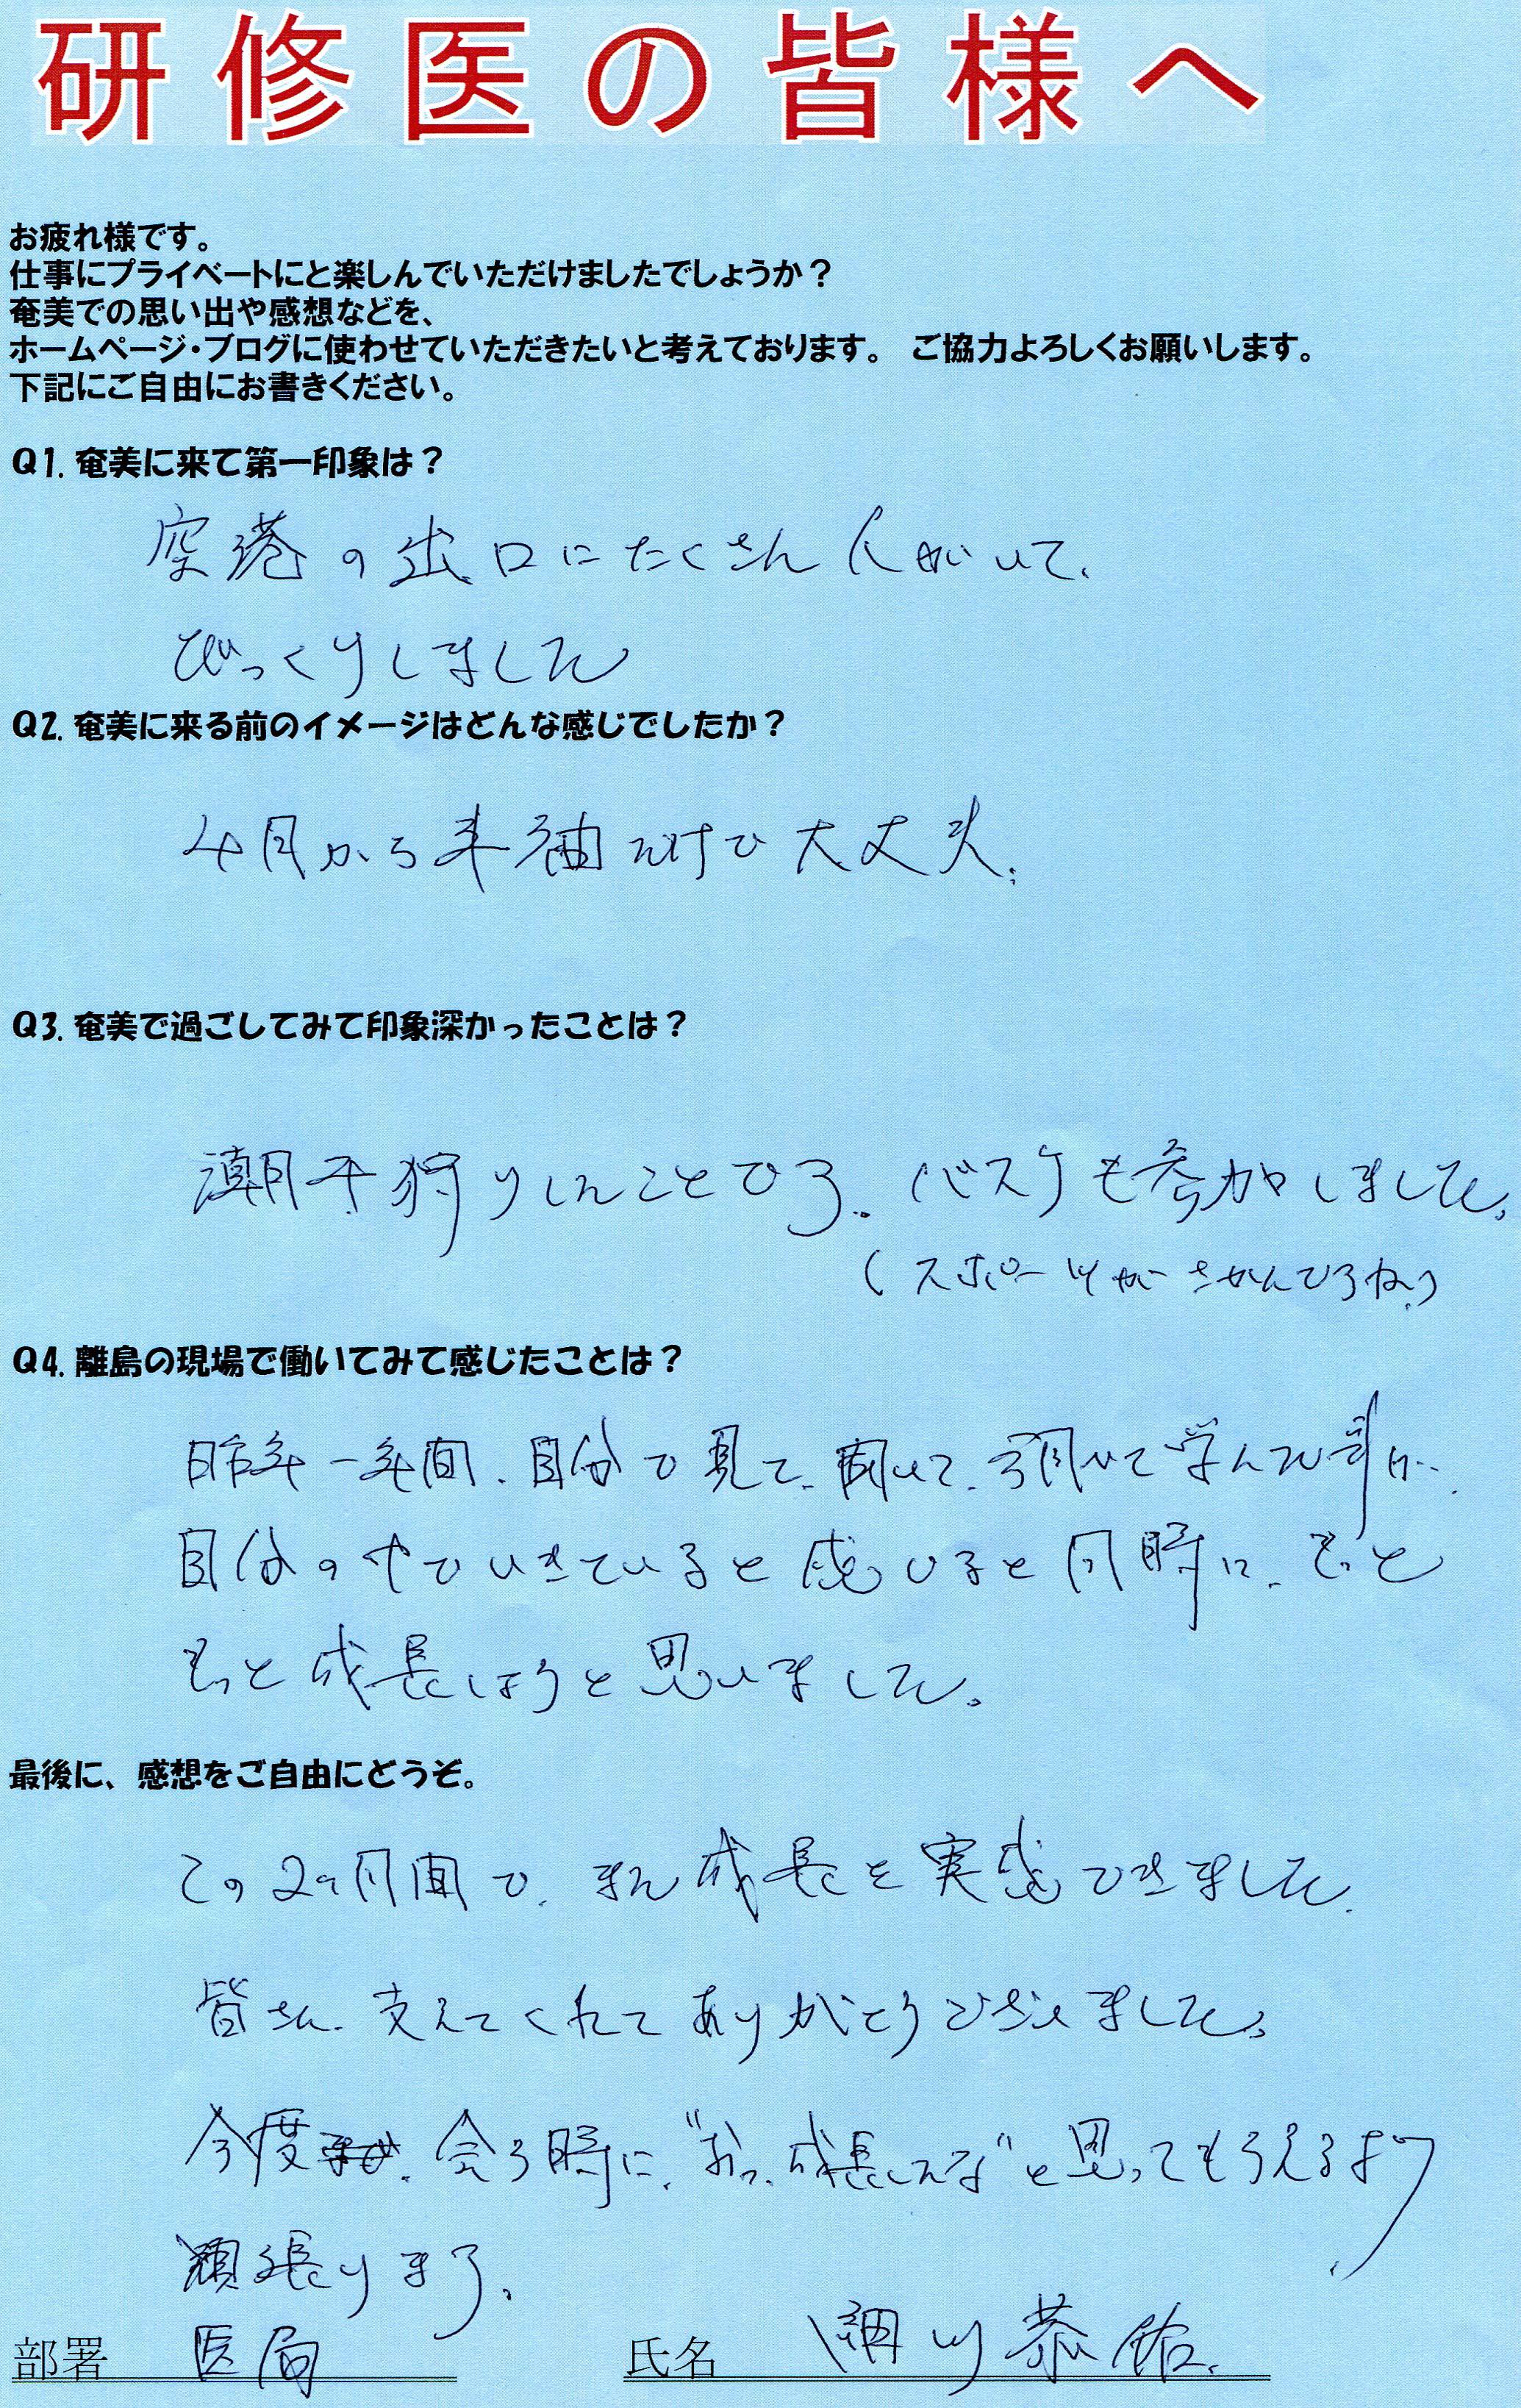 研修医の皆様へ
お疲れ様です。
仕事にプライベートにと楽しんでいただけましたでしょうか？
奄美での思い出や感想などを、
ホームページ・ブログに使わせていただきたいと考えております。 ご協力よろしくお願いします。
下記にご自由にお書きください。
Q1. 奄美に来て第一印象は？
空港の出口にたくさん人がいて、
びっくりしました
Q2. 奄美に来る前のイメージはどんな感じでしたか？
4月から半袖だけで大丈夫。
Q3. 奄美で過ごしてみて印象深かったことは？
潮干狩りしたことです。バスケも参加しました。
(スポーツがさかんですね。)
Q4. 離島の現場で働いてみて感じたことは？
昨年一年間、自分で見て、聞いて、調べて学んだ事が、
自分の中で いきていると感じると同時に、もっと
もっと成長しようと思いました。
最後に、感想をご自由にどうぞ。
この2ヶ月間で、また成長を実感できました。
皆さん、支えてくれてありがとうございました。
今度、会う時に、"おっ、成長したな"と思ってもらえるよう、
頑張ります。
部署 医局 氏名 細川 恭佑